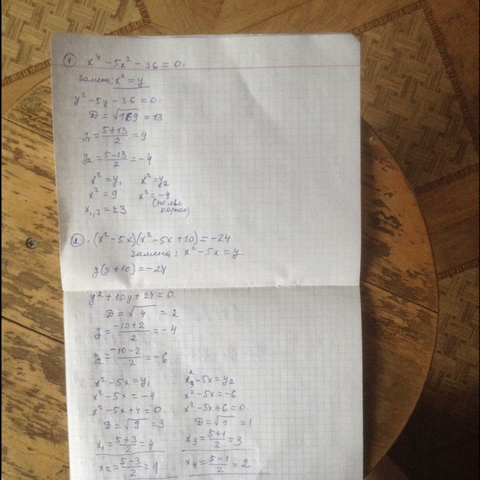 ① x⁴ - 5x² - 36 = 0.
Замена: x² = y
y² - 5y - 36 = 0.
D = √169 = 13
y₁ = (5+13)/2 = 9
y₂ = (5-13)/2 = -4
x² = y₁ x² = y₂
x² = 9 x² = -4
x₁,₂ = ±3 корней)
② (x² - 5x)(x² - 5x + 10) = -24
Замена: x² - 5x = y
y(y + 10) = -24
y² + 10y + 24 = 0.
D = √4 = 2
y₁ = (-10+2)/2 = -4
y₂ = (-10-2)/2 = -6
x² - 5x = y₁ x² - 5x = y₂
x² - 5x = -4 x² - 5x = -6
x² - 5x + 4 = 0. x² - 5x + 6 = 0.
D = √9 = 3 D = √1 = 1
x₁ = (5+3)/2 = 4 x₃ = (5+1)/2 = 3
x₂ = (5-3)/2 = 1 x₄ = (5-1)/2 = 2